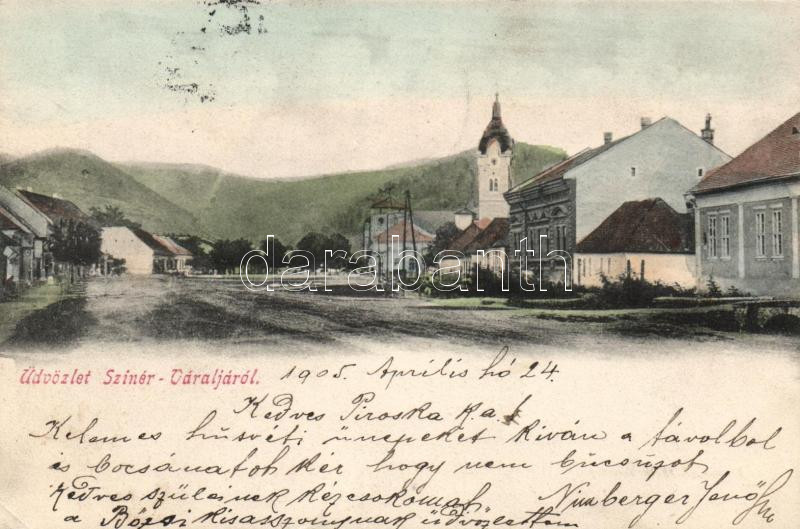 darabanth
Üdvözlet Szinér-Váraljáról.
1905. Április hó 24.
Kedves Piroska k.a!
Kelemes húsvéti ünnepeket kíván a távolból
és bocsánatot kér hogy nem búcsúzot
Kedves szüleinek kézcsokomat Nürnberger Jenő
a Bözsi kisasszonynak üdvözletem